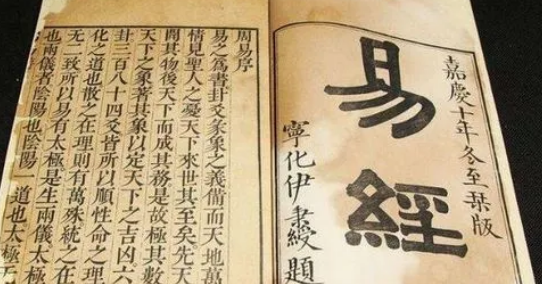 嘉慶十年冬至栞版
易經
寧化伊秉綬題
周易序
易之爲書卦爻彖象之義備而天地萬
情見聖人之憂天下來世其至矣先天
開其物後天下而成其務是故極其數
天下之象著其象以定天下之吉凶六
卦三百八十四爻皆所以順性命之理
化之道也散之在理則有萬殊統之在
无二致所以易有太極是生兩儀太極
也兩儀者陰陽也陰陽一道也太極